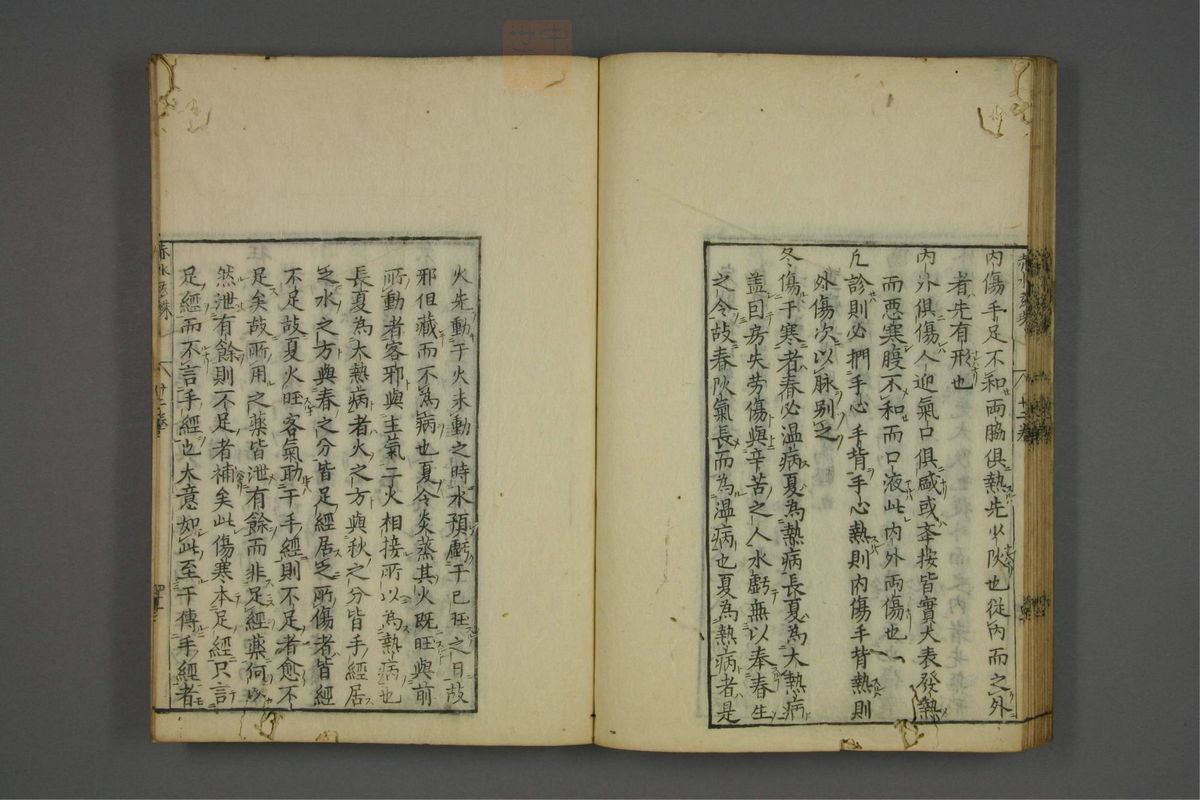 內傷手足不和両脇俱熱先少陽也從內而之外
者先有形也
內外俱傷人迎氣口俱盛或本按皆實大表發熱
而惡寒腹不和而口液此內外両傷也
凡診則必捫手心手背手心熱則內傷手背熱則
外傷次以脉別之
冬傷于寒者春必温病夏為熱病長夏為大熱病
盖因房失劳傷與辛苦之人水虧無以奉春生
之令故春陽氣長而為温病也夏為熱病者是
火先動于火未動之時水預虧于已旺之日故
邪但藏而不為病也夏令炎蒸其火既旺與前
所動者客邪與主氣二火相接所以為熱病也
長夏為大熱病者火之方與秋之分皆手經居
之水之方與春之分皆足經居之所傷者皆經
不足故夏火旺客氣助于手經則不足者愈不
足矣故所用之薬皆泄有餘而非足經薬何以
然泄有餘則不足者補矣此傷寒本足經只言
足經而不言手經也大意如此至于傳手經者